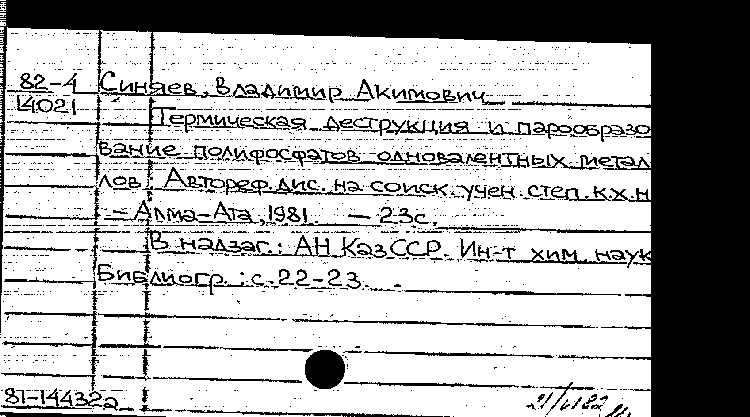 82-4 Синяев, Владимир Акимович
14021
Термическая деструкция и парообразо
вание полифосфатов одновалентных метал
лов: Автореф. дис. на соиск. учен. степ. к.х.н
– Алма-Ата, 1981. – 23с.
В надзаг.: АН КазССР. Ин-т хим. наук
Библиогр.: с. 22-23.
81-14432а